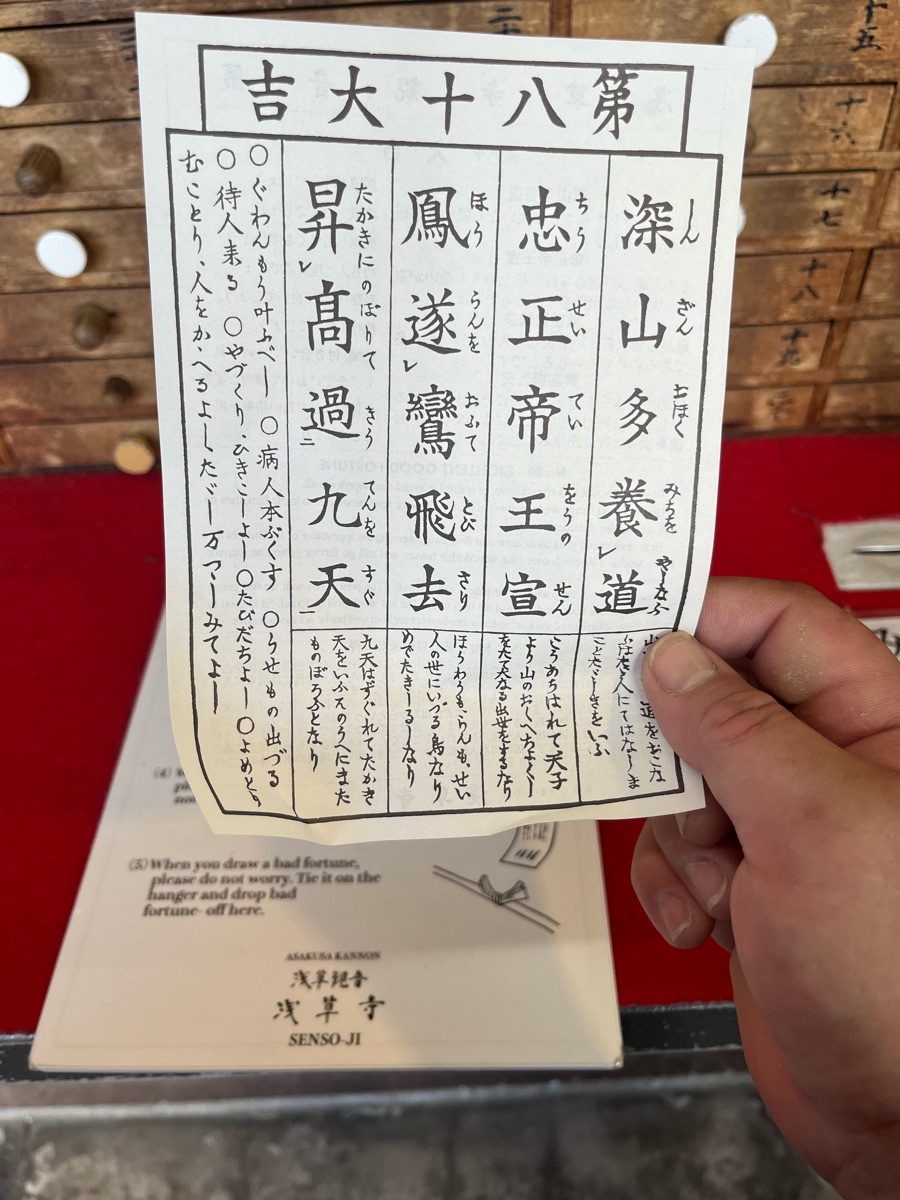 第八十大吉
深山多養道
しん ざん おほく みちを やしなふ
忠正帝王宣
ちう せい てい をうの せん
鳳遂鸞飛去
ほう らんを おふて とび さり
昇高過九天
たかきにのぼりて きう てんを すぐ
レ
レ
レ
二
一
こうあちはれて天子
より山のおくへちよくし
をたて大なる出世をするなり
ほうわうも、らんも、せい
人の世にいづる鳥なり
めでたきしるしなり
九天はすぐれてたかき
天をいふそのうへにまた
ものぼろふとなり
〇ぐわんもう叶ふべし 〇病人本ぶくす 〇うせもの出づる
〇待人来る 〇やづくり、ひきこしよし 〇たびだちよし 〇よめとり
むことり、人をかゝへるよしたゞし 万つゝしみてよし
二十
十五
十六
十七
十八
十九
(4)
(5) When you draw a bad fortune,
please do not worry. Tie it on the
hanger and drop bad
fortune- off here.
ASAKUSA KANNON
浅草観音
浅草寺
SENSO-JI